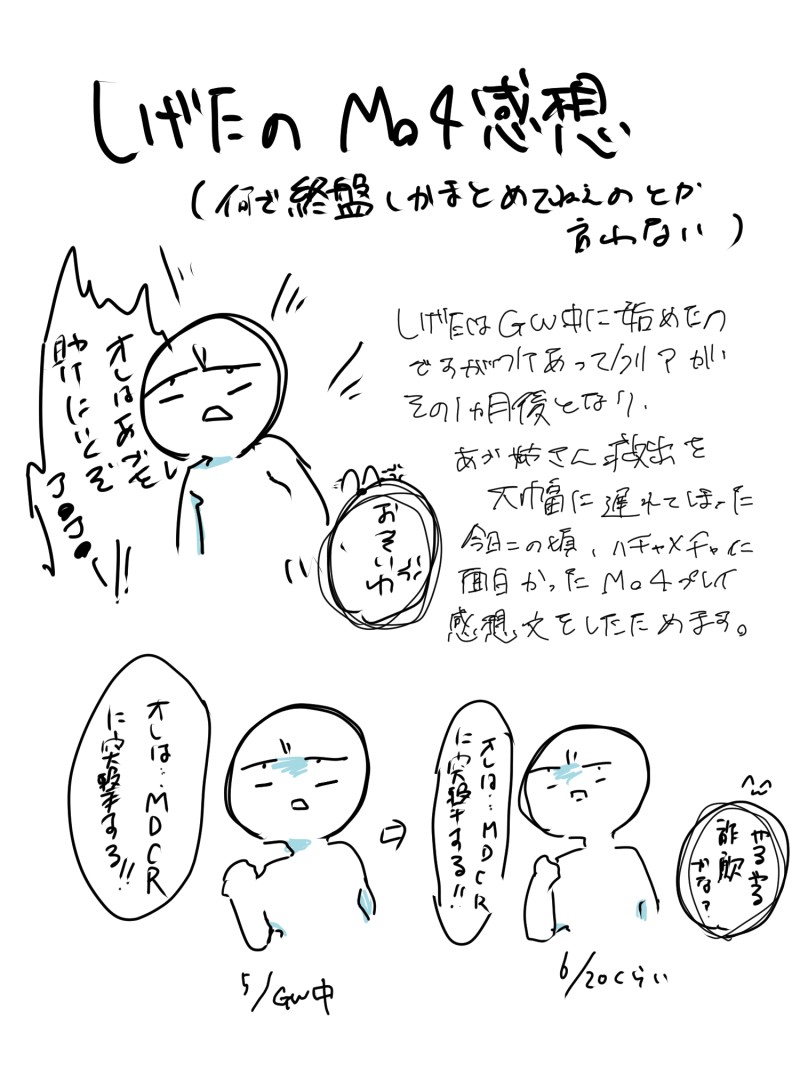 しげたのMo4感想
(何で終盤しかまとめてねえのとか
言わない)
オレはあがをし
助けにいくぞ
おそいわ
しげたはGW中に始めたの
ですが
クリアが
その1ヵ月後となり、
あが姉さん救出を
大幅に遅れてしまった
今日この頃、ハチャメチャに
面白かったMo4プレイ
感想文をしたためます。
オレは…MDCR
に突撃する!!
⇨
オレは…MDCR
に突撃する!!
やるやる
詐欺
かな?
5/GW中
6/20くらい